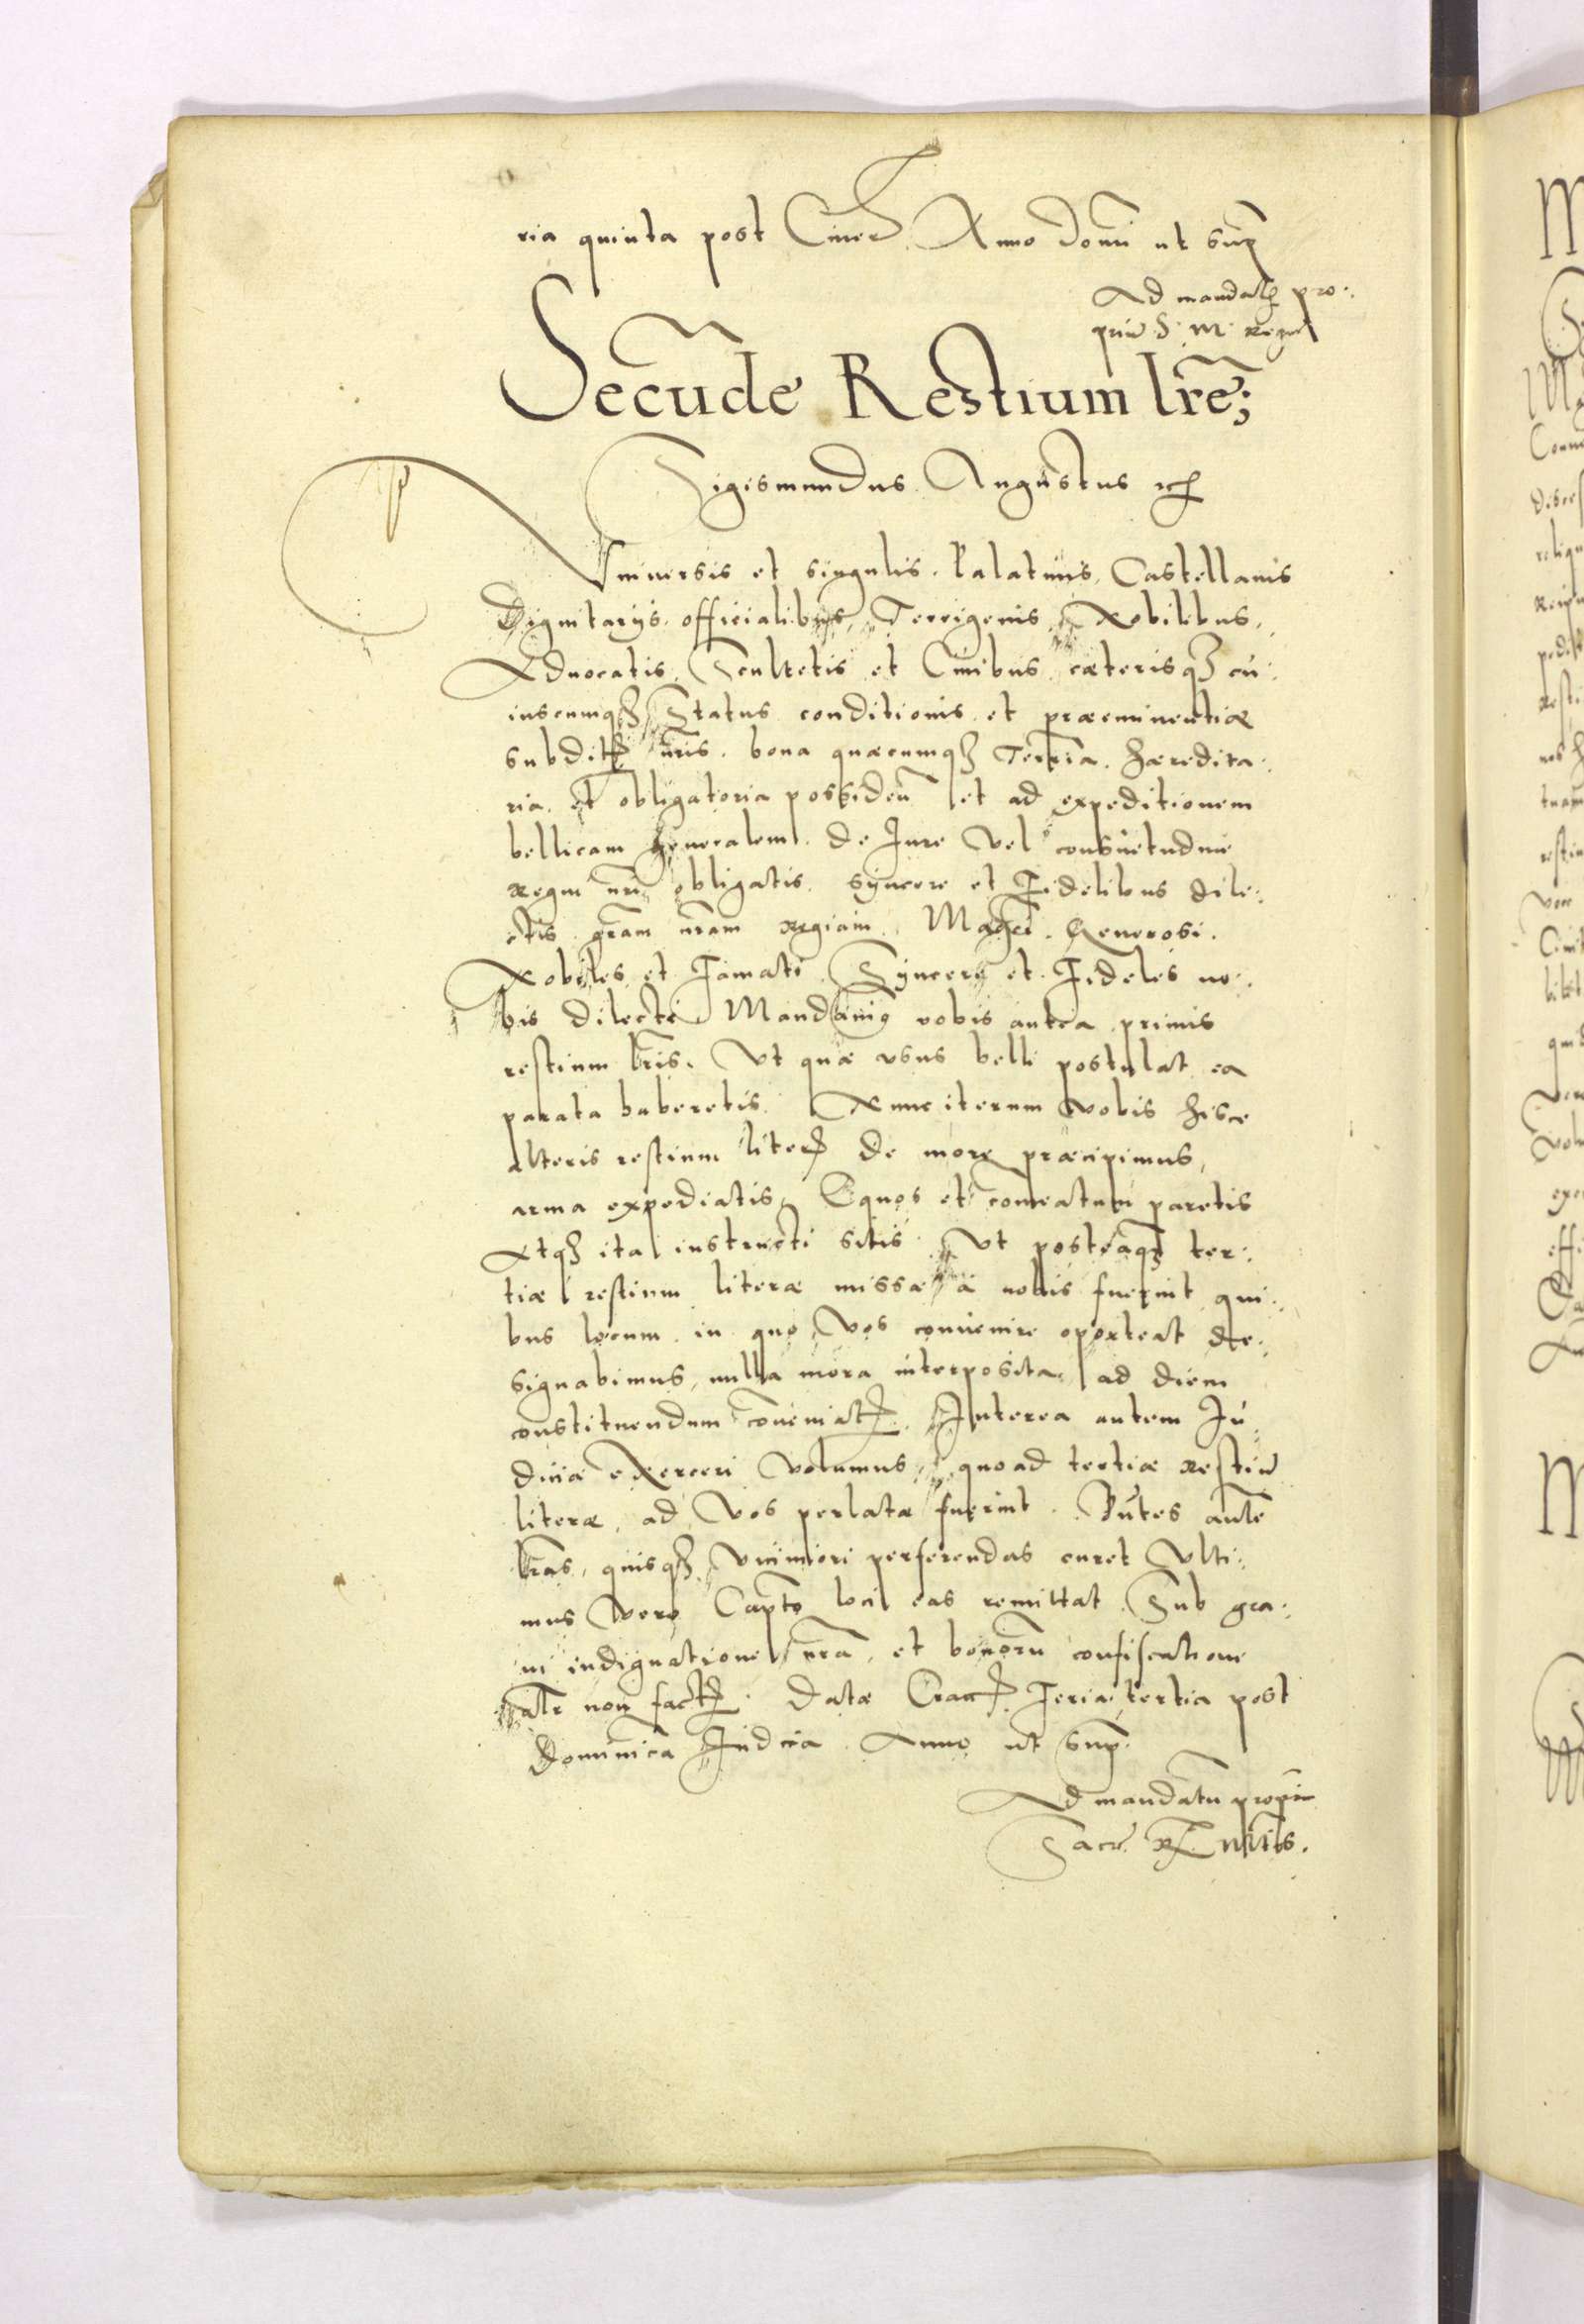 ria quinta post Ciner Anno Domi ut sup
Ad mandat pro:
priu S. M. Regie
Secūde Restium lrē;
Sigismundus Augustus etc
Vniuersis et singulis. Palatinis, Castellanis
Dignitarijs. officialibus, Terrigenis, Nobilibus,
Aduocatis, Scultetis et Ciuibus cæterisqȝ cu:
iuscumqȝ Status conditionis et præeminentiæ
subdit nr̄is. bona quæcumqȝ Terrīa. hæredita:
ria. et obligatoria possideñ et ad expeditionem
bellicam generalem. de Iure vel consuetudine
Regni nr̄i obligatis. syncere et Fidelibus dile:
ctis gr̄am nr̄am regiam. Magci. Generosi.
Nobiles et Famati. Syncere et Fideles no:
bis dilecti Mandauimꝰ vobis antea primis
restium lr̄is. Vt quæ vsus belli postulat ea
parata haberetis. Nunc iterum vobis hisce
alteris restium liter de more præcipimus,
arma expediatis, Equos et comeatum paretis
Atqȝ ita instructi sitis. Vt posteaqȝ ter:
tiæ restium literæ missæ a nobis fuerint qui:
bus locum in quo vos conuenire oporteat de:
signabimus, nulla mora interposita, ad diem
constituendum cōueniat. Interea autem Iu
dicia exerceri volumus, quoad tertiæ restiu
literæ, ad vos perlatæ fuerint. Pūtes autē
lr̄as, quisqȝ vicimiori perferendas curet Vlti:
mus vero Capto loci eas remittat. Sub gra:
ui indignatione nr̄a, et bonorū confiscatione
alr non fact. Datæ Crac Feria tertia post
dominica Iudica. Anno ut sup.
Ad mandatū propriū
Sacr R. Mtis.